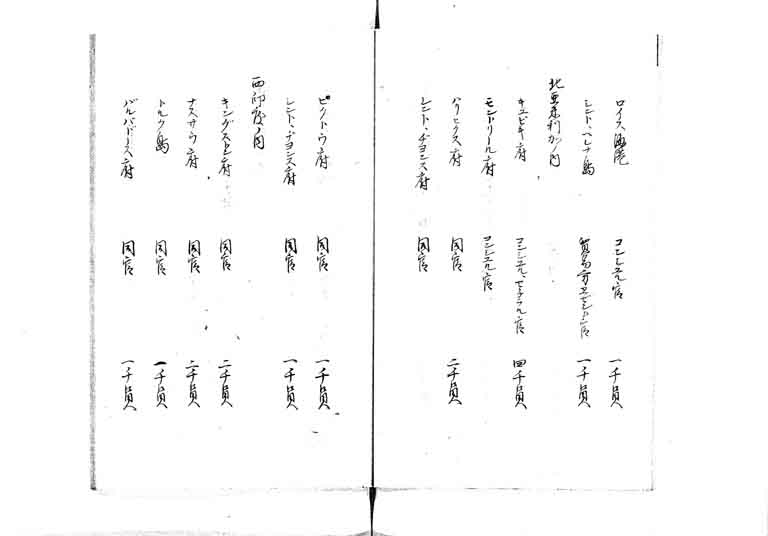 ロイス海港 コンシユル官 一千員
シント、ヘレナ島 貿易方コンシユル官 一千員
北亜米利加ノ内
キユビキ府 コンシユル、セネラル官 四千員
モントリール府 コンシユル官
ハリヒクス府 同官 二千員
シント、ヂヨンス府 同官
ピクトウ府 同官 一千員
シント、ヂヨンス府 同官 一千員
西印度ノ内
キングストン府 同官 二千員
ナスサウ府 同官 二千員
トルク島 同官 一千員
バルバドース府 同官 一千員